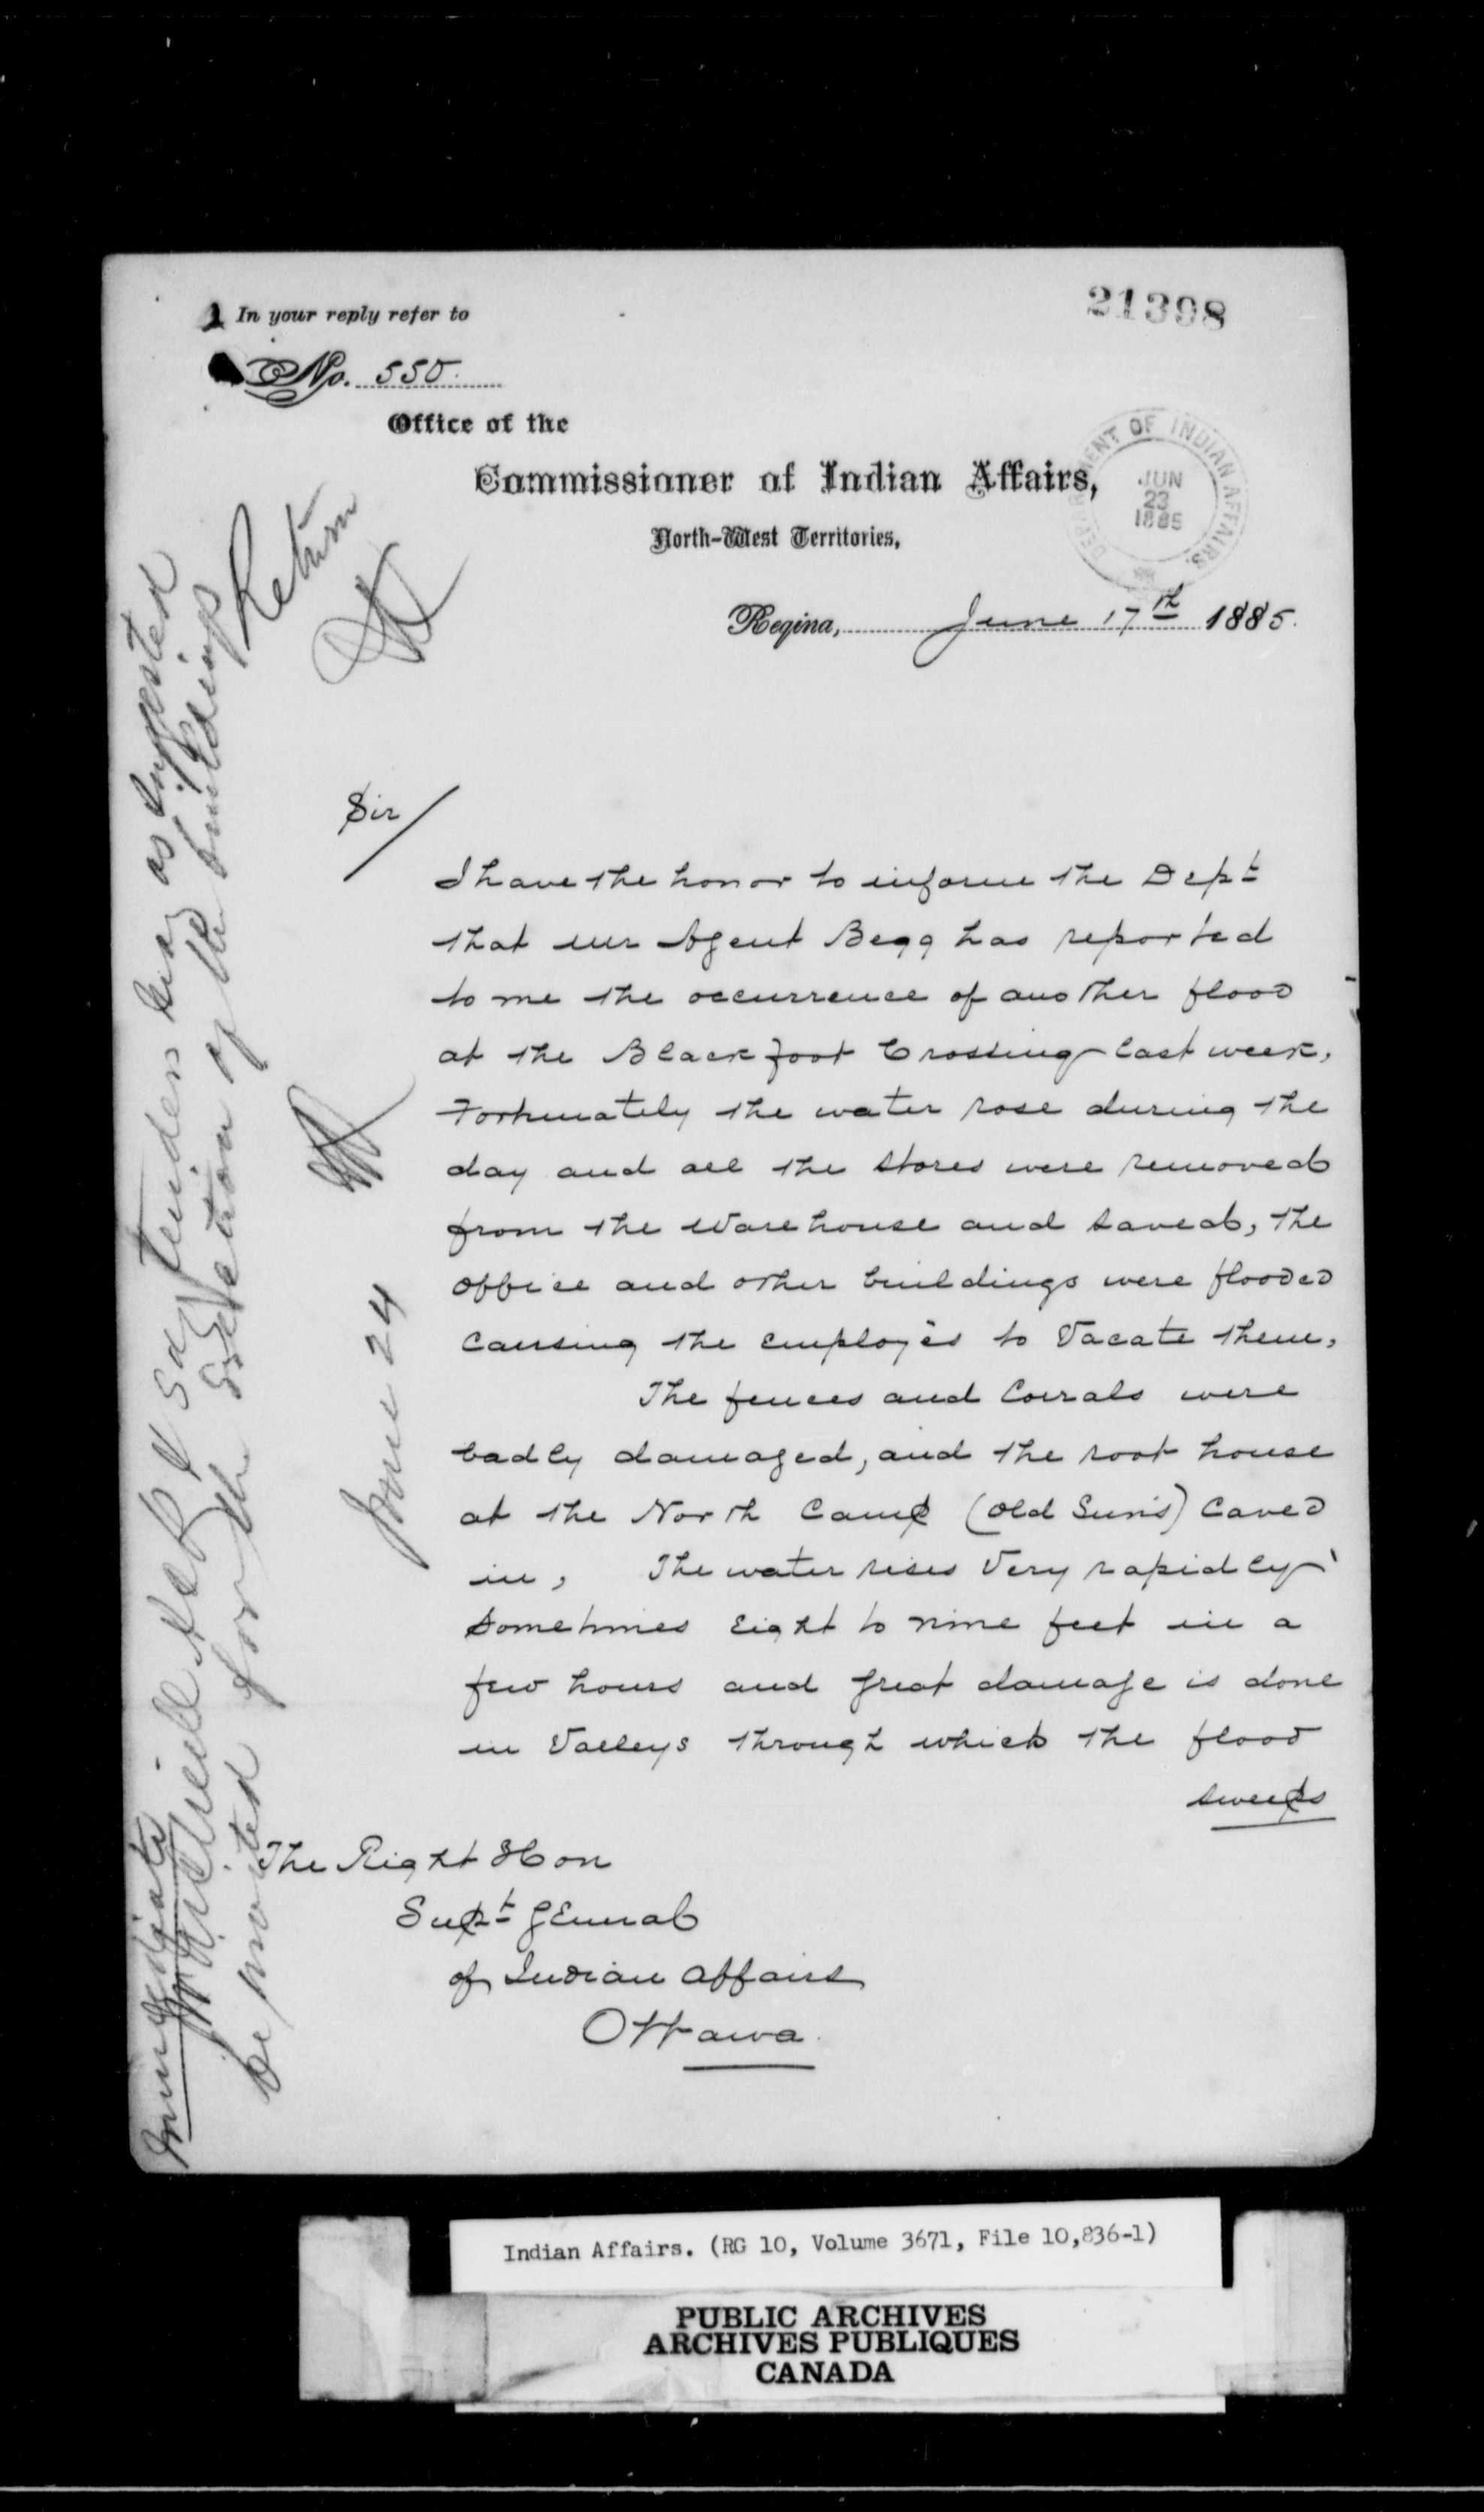 In your reply refer to
No. 550.
21398
Office of the
Commissioner of Indian Affairs,
North-West Territories,
DEPARTMENT OF INDIAN AFFAIRS.
JUN
23
1885
Regina, June 17th 1885.
Sir
I have the honor to inform the Dept
that our Agent Begg has reported
to me the occurrence of another flood
at the Blackfoot Crossing last week,
Fortunately the water rose during the
day and all the stores were removed
from the Warehouse and saved, the
Office and other buildings were flooded
Causing the employés to Vacate them,
The fences and Corrals were
badly damaged, and the root house
at the North Camp (Old Sun's) Caved
in, The water rises Very rapidly
Sometimes Eight to nine feet in a
few hours and great damage is done
in Valleys through which the flood
sweeps
The Right Hon
Supt General
of Indian Affairs
Ottawa.
Immediate
say tenders may as suggested
be invited for the of the building
Return
June 24
Indian Affairs. (RG 10, Volume 3671, File 10,836-1)
PUBLIC ARCHIVES
ARCHIVES PUBLIQUES
CANADA